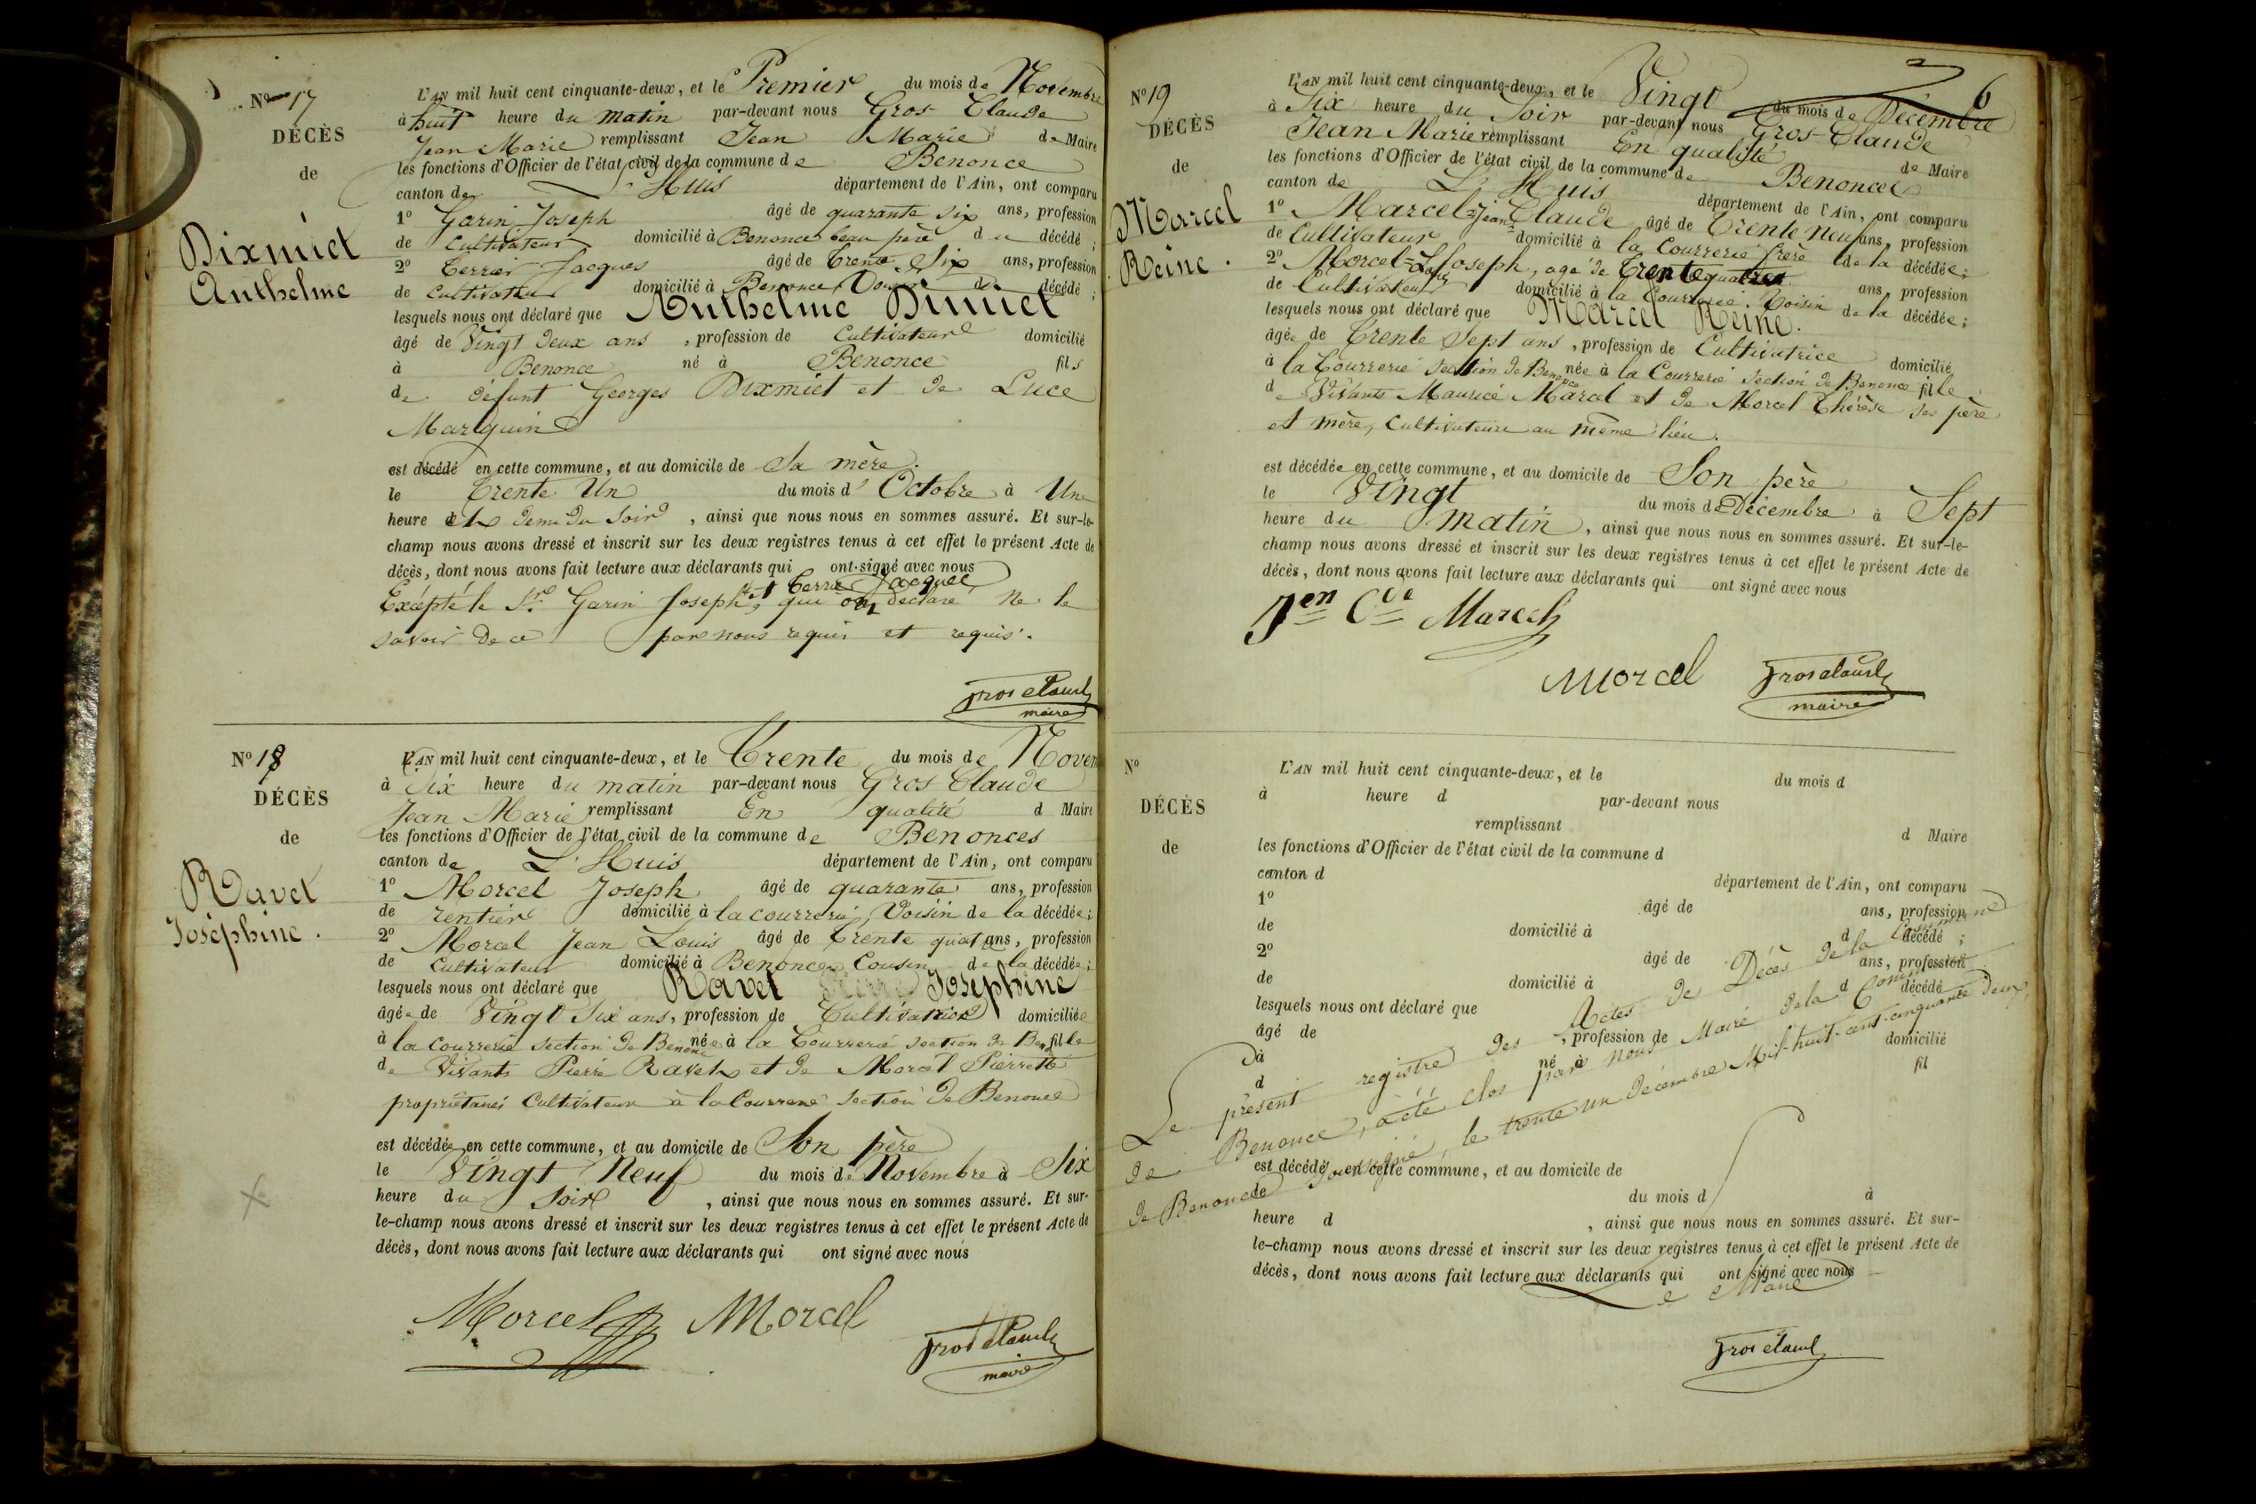 N° 17
DÉCÈS
de
Dixmiet
Anthelme
L'AN mil huit cent cinquante-deux, et le Premier du mois de Novembre
à huit heure du matin par-devant nous Gros Claude
Jean Marie remplissant Jean Marie de Maire
les fonctions d'Officier de l'état civil de la commune de Benonce
canton de L'Huis département de l'Ain, ont comparu
1° Garin Joseph âgé de quarante six ans, profession
de Cultivateur domicilié à Benonce beau père du décédé ;
2° Terrier Jacques âgé de trente Six ans, profession
de Cultivateur domicilié à Benonce décédé ;
lesquels nous ont déclaré que Anthelme Dimiet
âgé de Vingt deux ans, profession de Cultivateur domicilié
à Benonce né à Benonce fils
de défunt Georges Dixmiet et de Luce
Marquin
est décédé en cette commune, et au domicile de Sa mère.
le Trente Un du mois d'Octobre à Une
heure et demi du Soir, ainsi que nous nous en sommes assuré. Et sur-le-
champ nous avons dressé et inscrit sur les deux registres tenus à cet effet le présent Acte de
décès, dont nous avons fait lecture aux déclarants qui ont signé avec nous
Excépté le Sr. Garin Joseph, et Terrier Jacques qui ont déclaré ne le
savoir de ce par nous requis et requis.
Gros Claude
maire
N° 18
DÉCÈS
de
Ravet
Joséphine.
L'AN mil huit cent cinquante-deux, et le Trente du mois de Novem
à Six heure du matin par-devant nous Gros Claude
Jean Marie remplissant En qualité d Maire
les fonctions d'Officier de l'état civil de la commune de Benonces
canton de L'Huis département de l'Ain, ont comparu
1° Morcel Joseph âgé de quarante ans, profession
de rentier domicilié à la courrerie, Voisin de la décédée ;
2° Morcel Jean Louis âgé de Trente quatre ans, profession
de Cultivateur domicilié à Benonces Cousin de la décédée ;
lesquels nous ont déclaré que Ravet Joséphine
âgée de Vingt Six ans, profession de Cultivatrice domiciliée
à la Courrerie section de Benonce née à la Courrerie section de Ben fille
de Vivants Pierre Ravet et de Morcel Pierrette
propriétaires Cultivateurs à la Courrerie section de Benonce
est décédée en cette commune, et au domicile de Son père
le Vingt Neuf du mois de Novembre à Six
heure du Soir, ainsi que nous nous en sommes assuré. Et sur-
le-champ nous avons dressé et inscrit sur les deux registres tenus à cet effet le présent Acte de
décès, dont nous avons fait lecture aux déclarants qui ont signé avec nous
Morcel Morcel
Gros Claude
maire
6
N° 19
DÉCÈS
de
Marcel
Reine.
L'AN mil huit cent cinquante-deux, et le Vingt du mois de Décembre
à Six heure du Soir par-devant nous Gros-Claude
Jean Marie remplissant En qualité de Maire
les fonctions d'Officier de l'état civil de la commune de Benonces
canton de L'Huis département de l'Ain, ont comparu
1° Marcel=Jean=Claude âgé de Trente neuf ans, profession
de Cultivateur domicilié à la Courrerie frère de la décédée ;
2° Morcel=Joseph, âgé de Trente quatre ans, profession
de Cultivateur domicilié à la Courrerie. Voisin de la décédée ;
lesquels nous ont déclaré que Marcel Reine.
âgée de Trente Sept ans, profession de Cultivatrice domicilié
à la Courrerie section de Benonce née à la Courrerie section de Benonce fille
de Vivants Maurice Marcel et de Morcel Thérèse ses père
et mère, Cultivateurs au même lieu.
est décédée en cette commune, et au domicile de Son père
le Vingt du mois de Décembre à Sept
heure du matin, ainsi que nous nous en sommes assuré. Et sur-le-
champ nous avons dressé et inscrit sur les deux registres tenus à cet effet le présent Acte de
décès, dont nous avons fait lecture aux déclarants qui ont signé avec nous
Jen Cde Marcel
Morcel
Gros Claude
maire
N°
DÉCÈS
de
L'AN mil huit cent cinquante-deux, et le du mois d
à heure d par-devant nous
remplissant d Maire
les fonctions d'Officier de l'état civil de la commune d
canton d département de l'Ain, ont comparu
1° âgé de ans, profession
de domicilié à d décédé ;
2° âgé de ans, profession
de domicilié à d décédé
lesquels nous ont déclaré que
âgé de , profession de domicilié
à né à fil
d
Le présent registre des Actes de Décès de la Commune
de Benonce, a été clos par nous Maire de la Comm
de Benonce soussigné, le trente un décembre Mil-huit-cent-cinquante deux.
est décédé en cette commune, et au domicile de
le du mois d à
heure d , ainsi que nous nous en sommes assuré. Et sur-
le-champ nous avons dressé et inscrit sur les deux registres tenus à cet effet le présent Acte de
décès, dont nous avons fait lecture aux déclarants qui ont signé avec nous
Le Maire
Gros Claude